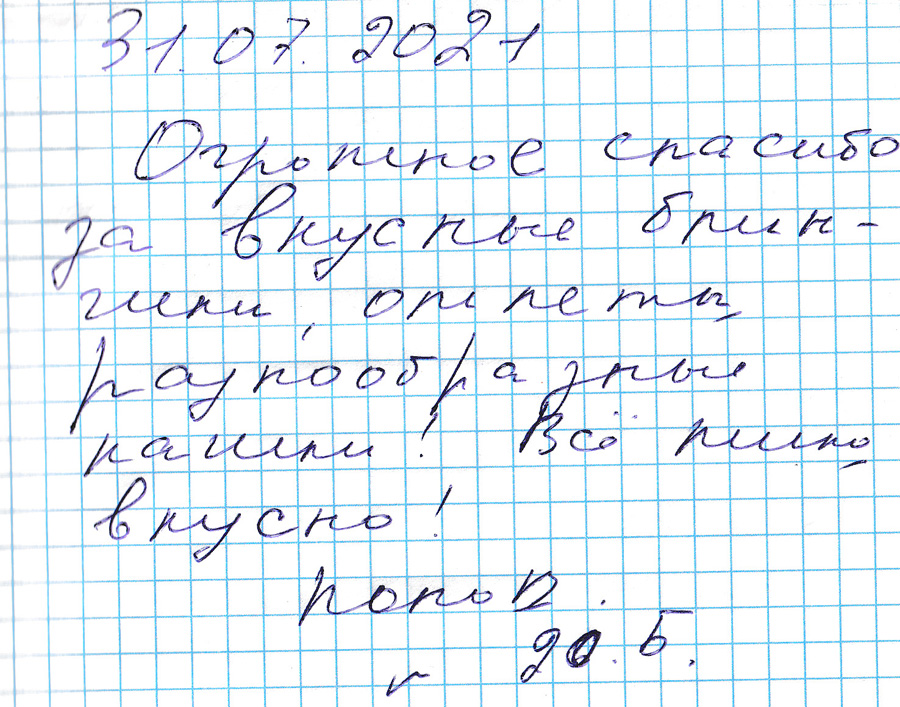 31.07.2021
Огромное спасибо
за вкусные блин-
чики, омлеты,
разнообразные
кашки! Всё
вкусно!